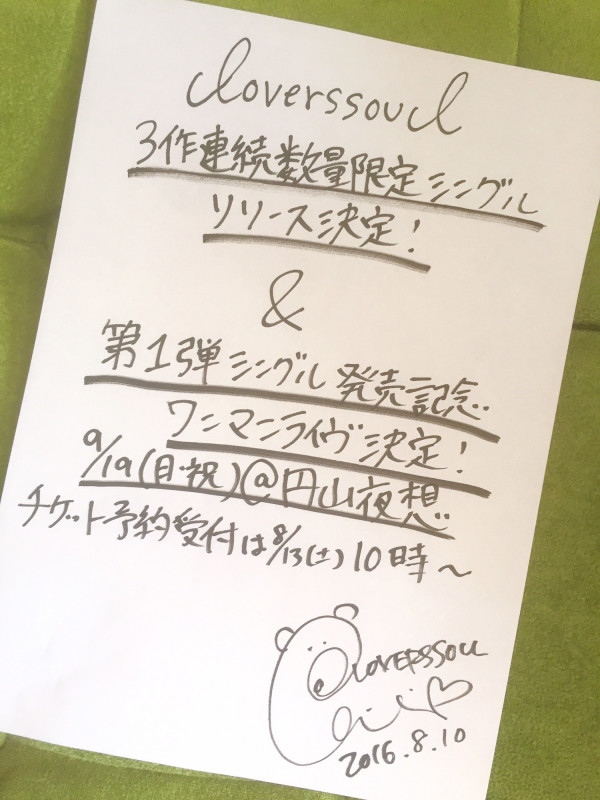 loverssoul
3作連続数量限定シングル
リリース決定!
&
第1弾シングル発売記念
ワンマンライヴ決定!
9/19(月・祝)@円山夜想
チケット予約受付は8/13(土)10時〜
loverssoul
2016.8.10